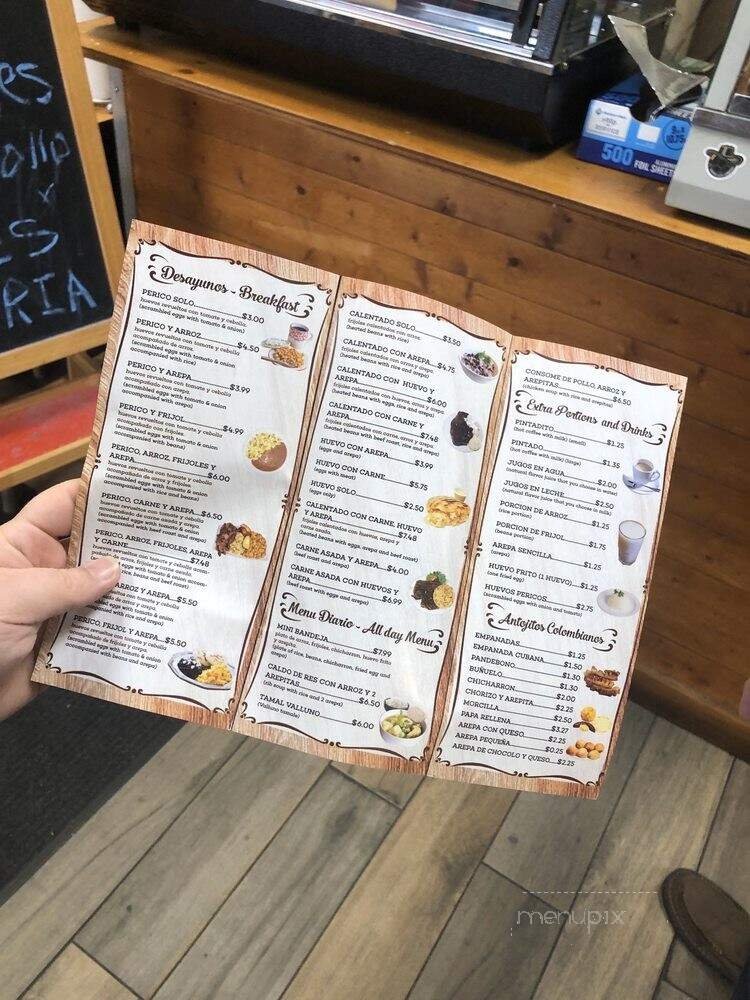 es
ollp
S
RIA
500
FOIL SHEETS
Desayunos - Breakfast
PERICO SOLO $3.00
huevos revueltos con tomate y cebolla
(scrambled eggs with tomato & onion)
PERICO Y ARROZ $4.50
huevos revueltos con tomate y cebolla
acompañado de arroz.
(scrambled eggs with tomato & onion
accompanied with rice)
PERICO Y AREPA $3.99
huevos revueltos con tomate y cebolla
acompañado con arepa,
(scrambled eggs with tomato & onion
accompanied with arepa)
PERICO Y FRIJOL $4.99
huevos revueltos con tomate y cebolla
acompañado con frijoles
(scrambled eggs with tomato & onion
accompanied with beans)
PERICO, ARROZ, FRIJOLES Y
AREPA $6.00
huevos revueltos con tomate y cebolla
acompañado de arroz y arepa.
(scrambled eggs with tomato & onion
accompanied with rice and beans)
PERICO, CARNE Y AREPA $6.50
huevos revueltos con tomate y cebolla
acompañado de carne asada y arepa.
(scrambled eggs with tomato & onion
accompanied with beef roast and arepa)
PERICO, ARROZ, FRIJOLES, AREPA
Y CARNE $7.48
huevos revueltos con tomate y cebolla acom-
de arroz, frijoles y carne asada.
eggs with tomato & onion accom-
rice, beans and beef roast)
ARROZ Y AREPA $5.50
revueltos con tomate y cebolla
de arroz y arepa.
eggs with tomato & onion
with rice and arepa)
PERICO, FRIJOL Y AREPA $5.50
huevos revueltos con tomate y cebolla
acompañado con frijoles y arepa.
(scrambled eggs with tomato & onion
accompanied with beans and arepa)
CALENTADO SOLO $3.50
frijoles calentados con arroz.
(heated beans with rice)
CALENTADO CON AREPA $4.75
frijoles calentados con arroz y arepa.
(heated beans with rice and arepa)
CALENTADO CON HUEVO Y
AREPA $6.00
frijoles calentados con huevos, arroz y arepa.
(heated beans with eggs, rice and arepa)
CALENTADO CON CARNE Y
AREPA $7.48
frijoles calentados con carne, arroz y arepa.
(heated beans with beef roast, rice and arepa)
HUEVO CON AREPA $3.99
(eggs and arepa)
HUEVO CON CARNE $5.75
(eggs with meat)
HUEVO SOLO $2.50
(eggs only)
CALENTADO CON CARNE, HUEVO
Y AREPA $7.48
frijoles calentados con huevos, carne y
arepa.
(heated beans with eggs, arepa and beef roast)
CARNE ASADA Y AREPA $4.00
(beef roast and arepa)
CARNE ASADA CON HUEVOS Y
AREPA $6.99
(beef roast with eggs and arepa)
Menu Diario - All day Menu
MINI BANDEJA $7.99
plato de arroz, frijoles, chicharron, huevo frito
y arepa.
(plate of rice, beans, chicharron, fried egg and
arepa)
CALDO DE RES CON ARROZ Y 2
AREPITAS $6.50
(rib soup with rice and 2 arepas)
TAMAL VALLUNO $6.00
(Valluno tamale)
CONSOME DE POLLO, ARROZ Y
AREPITAS $6.50
(chicken soup with rice and arepitas)
Extra Portions and Drinks
PINTADITO $1.25
(hot coffee with milk) (small)
PINTADO $1.35
(hot coffee with milk) (large)
JUGOS EN AGUA $2.00
(natural flavor juice that you choose in water)
JUGOS EN LECHE $2.50
(natural flavor juice that you choose in milk)
PORCION DE ARROZ $1.25
(rice portion)
PORCION DE FRIJOL $1.75
(beans portion)
AREPA SENCILLA $1.25
(arepa)
HUEVO FRITO (1 HUEVO) $1.25
(one fried egg)
HUEVOS PERICOS $2.75
(scrambled eggs with onion and tomato)
Antojitos Colombianos
EMPANADAS $1.25
EMPANADA CUBANA $1.50
PANDEBONO $1.30
BUÑUELO $1.30
CHICHARRON $2.00
CHORIZO Y AREPITA $2.25
MORCILLA $2.50
PAPA RELLENA $3.27
AREPA CON QUESO $2.25
AREPA PEQUEÑA $0.25
AREPA DE CHOCOLO Y QUESO $2.25
menupix